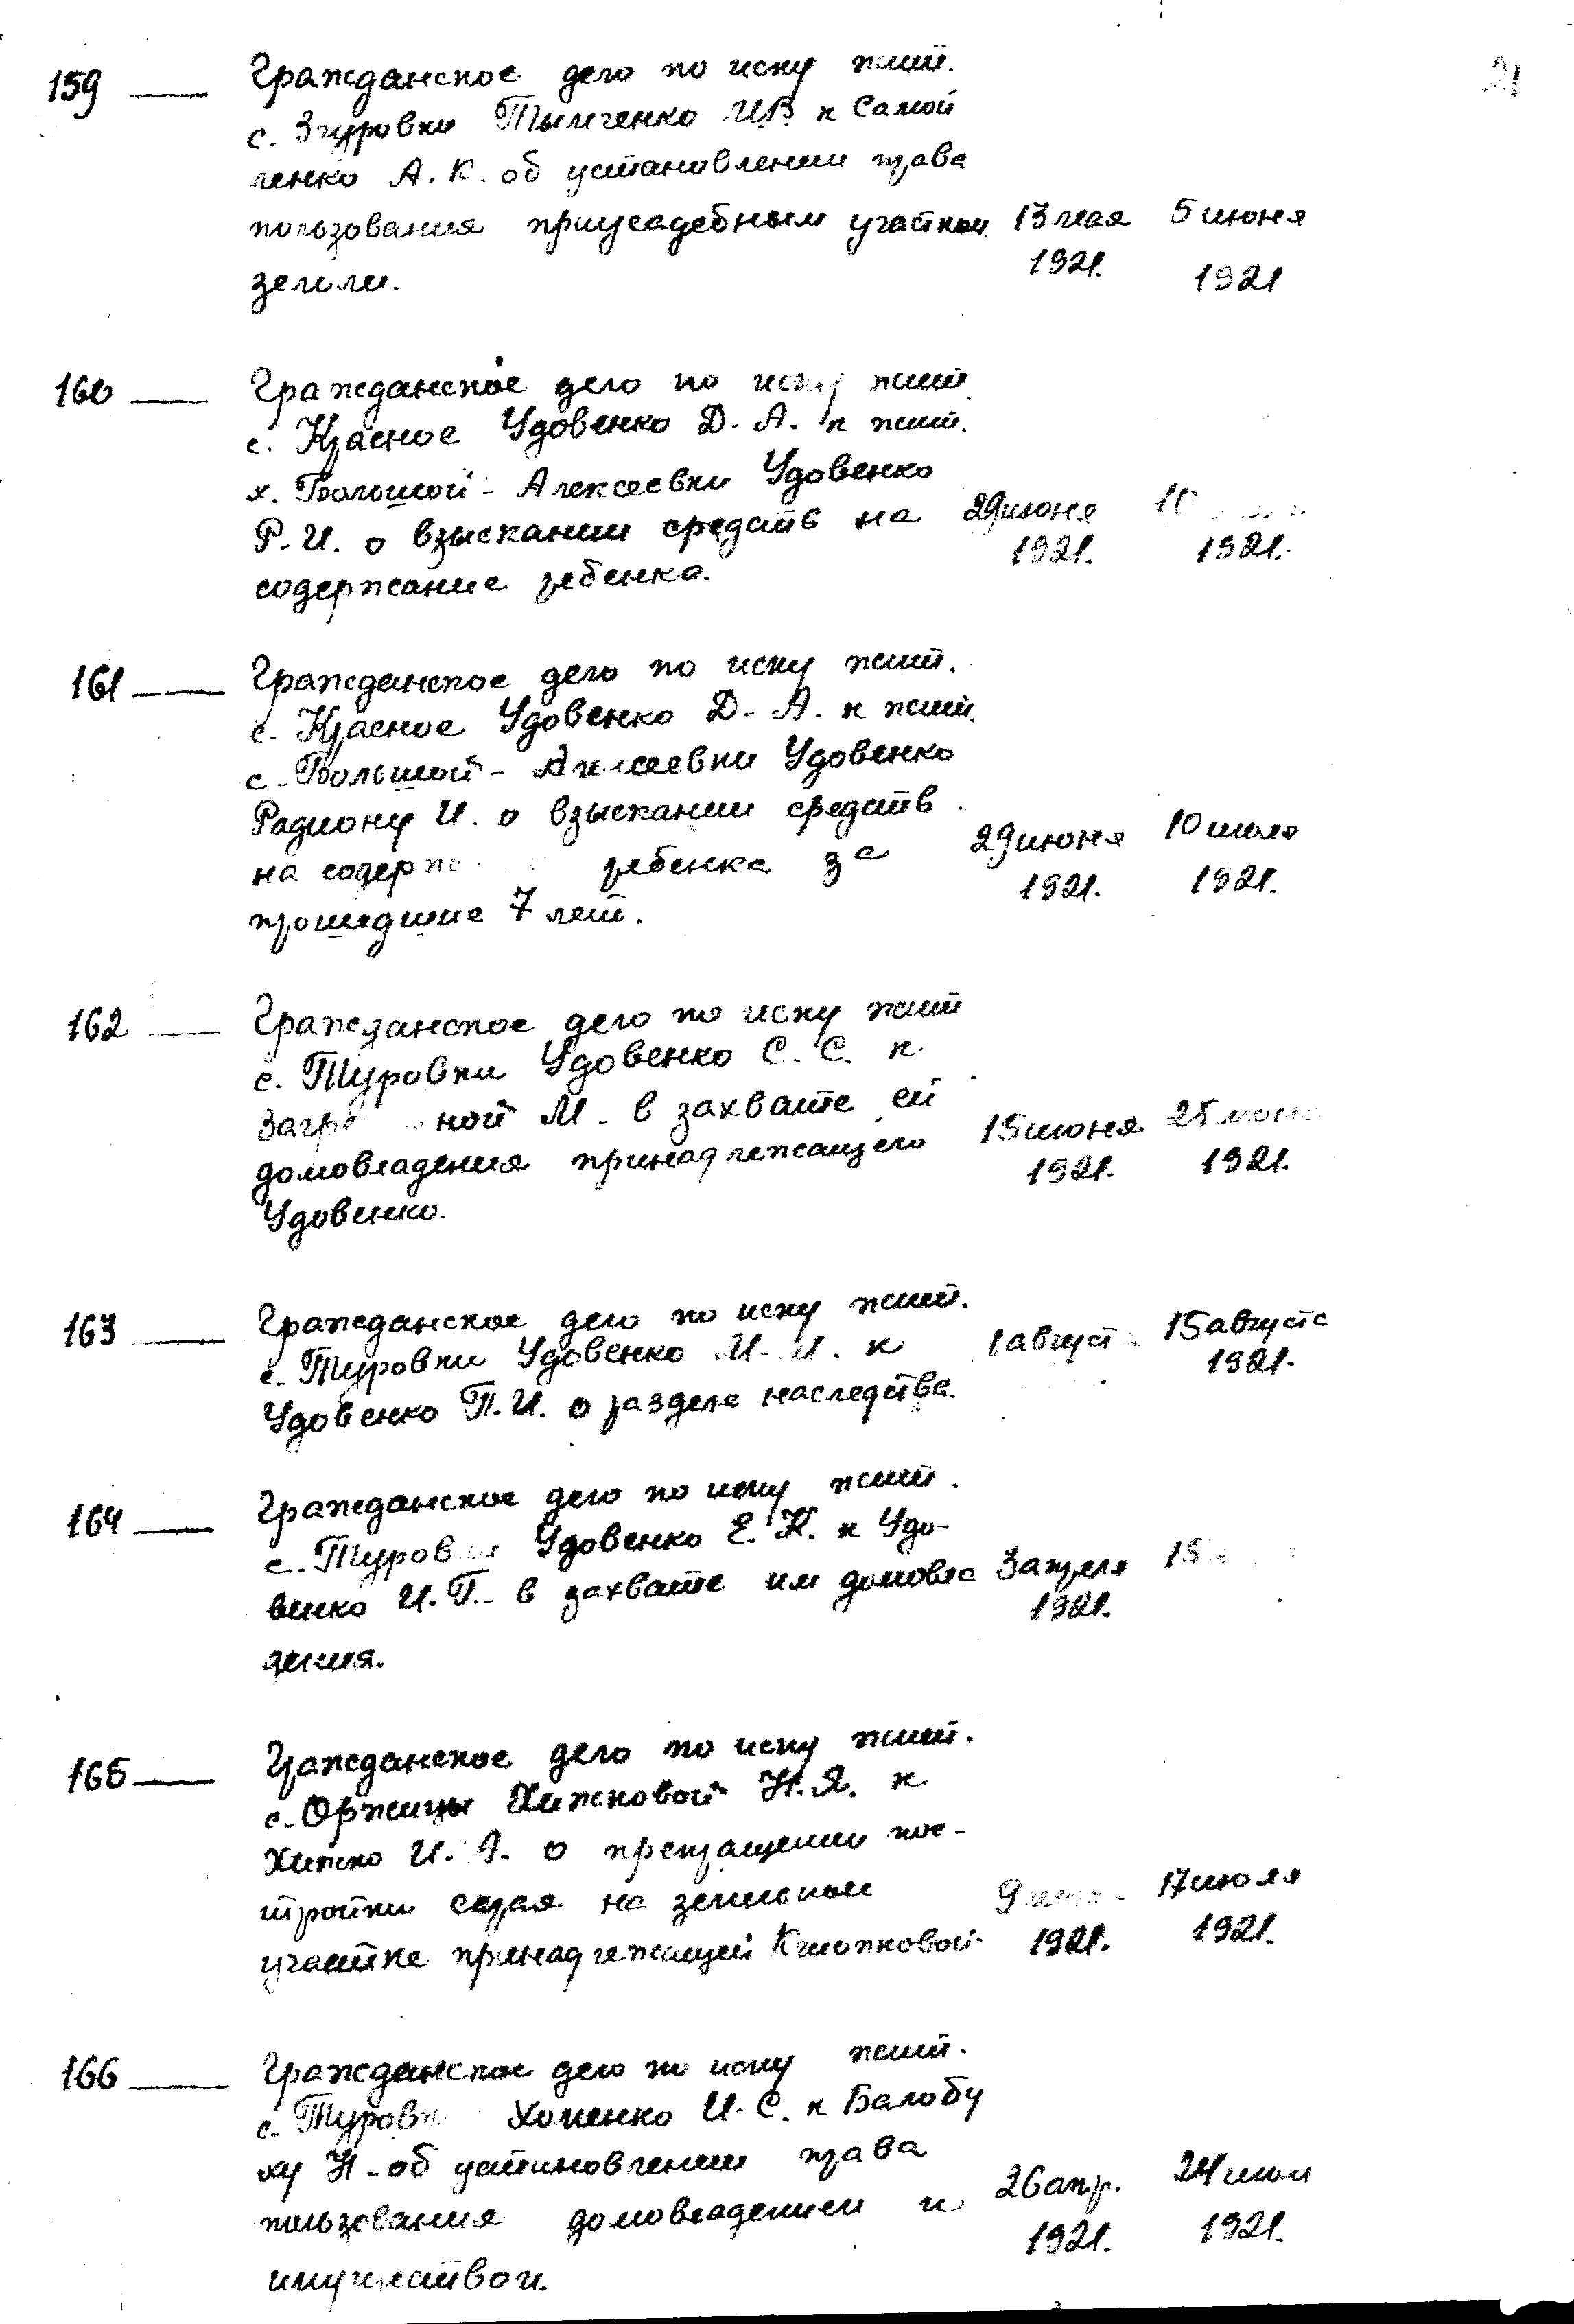 21
159 — Гражданское дело по иску жит.
с. Згуровки Тымченко И.В к Самой
ленко А. К. об установлении права
пользования приусадебным участком 13 мая 5 июня
земли. 1921. 1921
160 — Гражданское дело по иску жит
с. Красное Удовенко Д. А. к жит.
х. Большой - Алексеевки Удовенко
Р. И. о взыскании средств на 29 июня 10
содержание ребенка. 1921. 1921.
161 — Гражданское дело по иску жит.
с. Красное Удовенко Д. А. к жит.
с. Большой - Алексеевки Удовенко
Радиону И. о взыскании средств
на ребенка за 29 июня 10 июля
прошедшие 7 лет. 1921. 1921.
162 — Гражданское дело по иску жит
с. Туровки Удовенко С. С. к
М. в захвате ей
домовладения принадлежащего 15 июня 25
Удовенко. 1921. 1921.
163 — Гражданское дело по иску жит.
с. Туровки Удовенко И. к 1 август 15 августа
Удовенко П. И. о разделе наследства. 1921.
164 — Гражданское дело по иску жит.
с. Туровки Удовенко Е. К. к Удо-
венко И. Г. в захвате им домовла 3 апреля 15
дения. 1921.
165 — Гражданское дело по иску жит.
с. Оржицы Хижковой Н. Я. к
Хижко И. А. о прекращении пос-
тройки сарая на земельном
участке принадлежащей 9 17 июля
1921. 1921.
166 — Гражданское дело по иску жит.
с. Туровк Хоменко И. С. к Балобу
ху Н. об установлении права
пользования домовладением и 26 апр. 24 июл
имуществом. 1921. 1921.